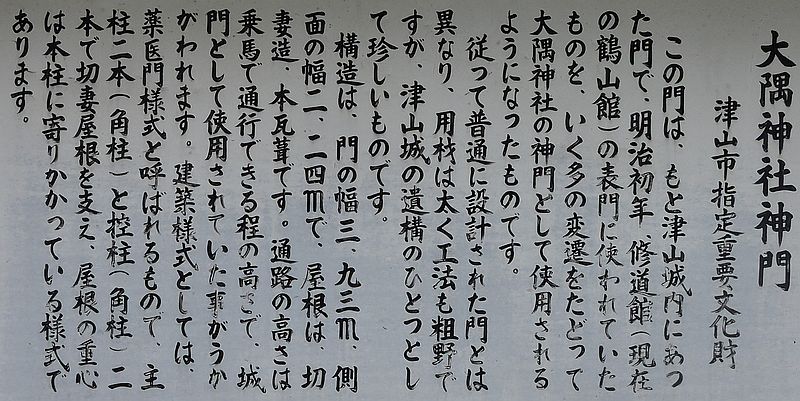 大隅神社神門
津山市指定重要文化財
この門は、もと津山城内にあっ
た門で、明治初年、修道館(現在
の鶴山館)の表門に使われていた
ものを、いく多の変遷をたどって
大隅神社の神門として使用される
ようになったものです。
従って普通に設計された門とは
異なり、用材は太く工法も粗野で
すが、津山城の遺構のひとつとし
て珍しいものです。
構造は、門の幅三、九三m 側
面の幅二、二四mで、屋根は、切
妻造、本瓦葺です。通路の高さは
乗馬で通行できる程の高さで、城
門として使用されていた事がうか
がわれます。建築様式としては、
薬医門様式と呼ばれるもので、主
柱二本(角柱)と控柱(角柱)二
本で切妻屋根を支え、屋根の重心
は本柱に寄りかかっている様式で
あります。